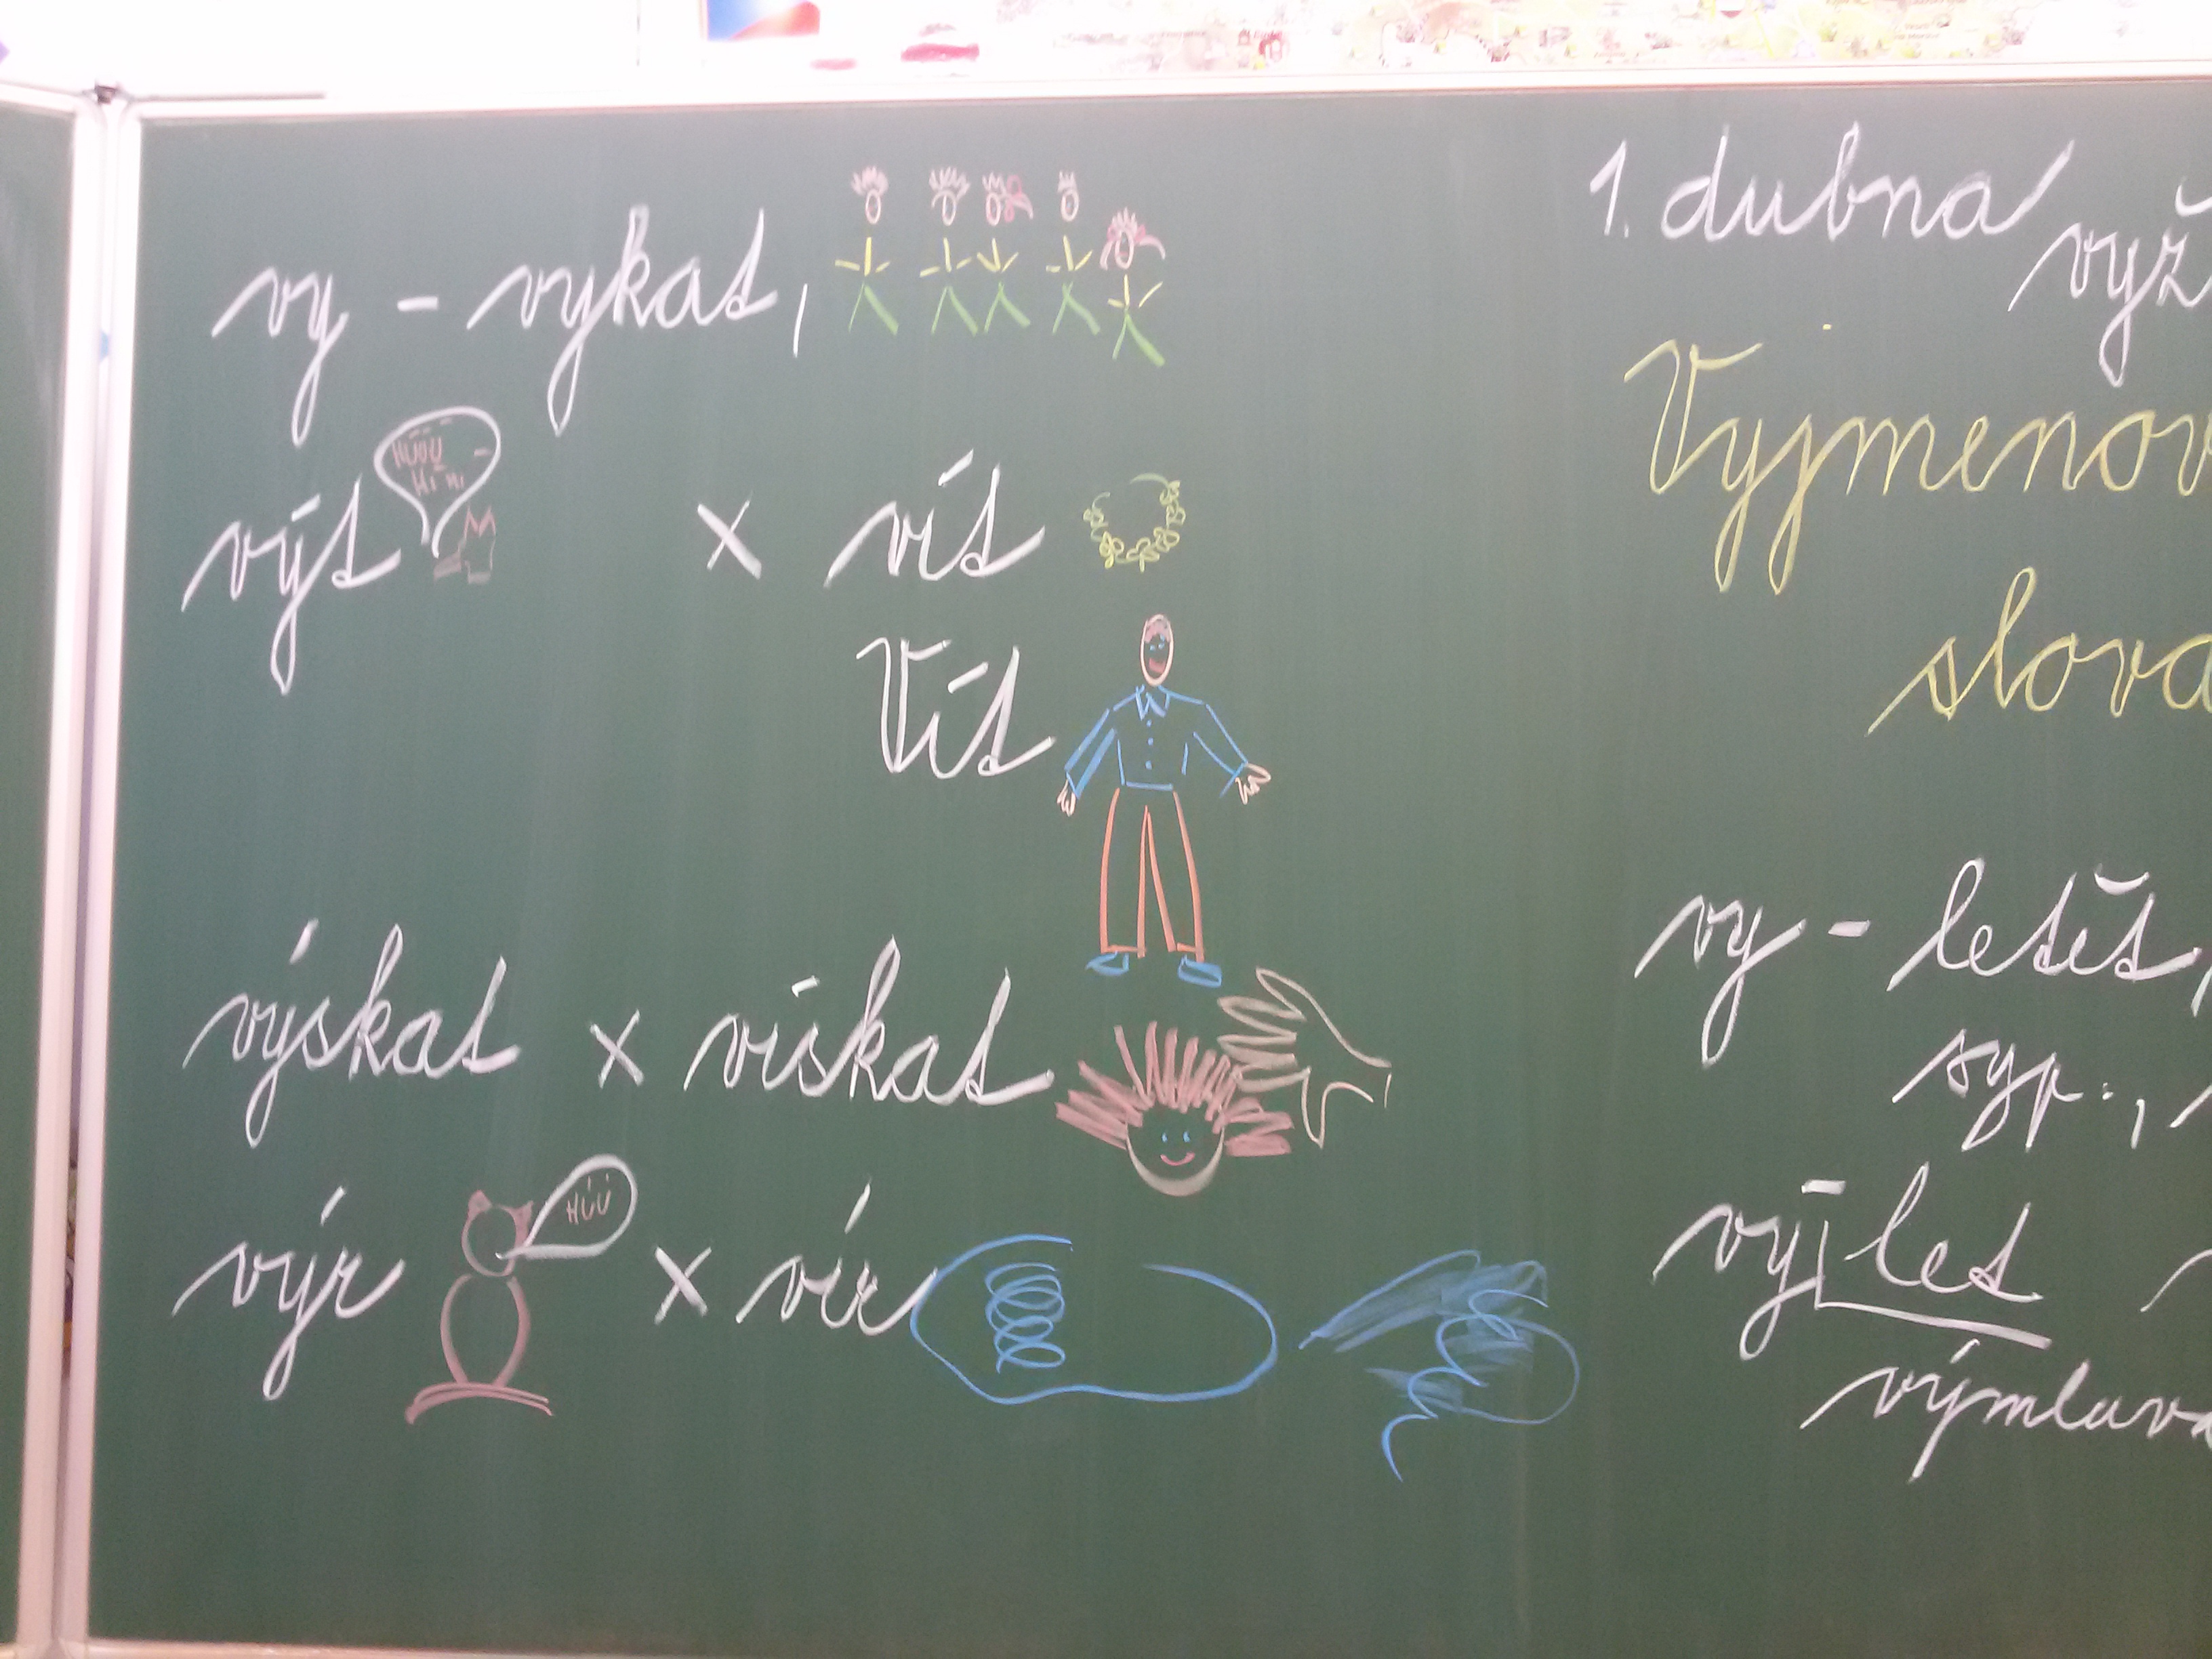 vy - vykat,
HUUU
výt x vít
Vít
výskat x vískat
HÚÚ
výr x vír
1. dubna
Vyjmenov
slova
vy - letět,
syp.,
výlet
výmluva